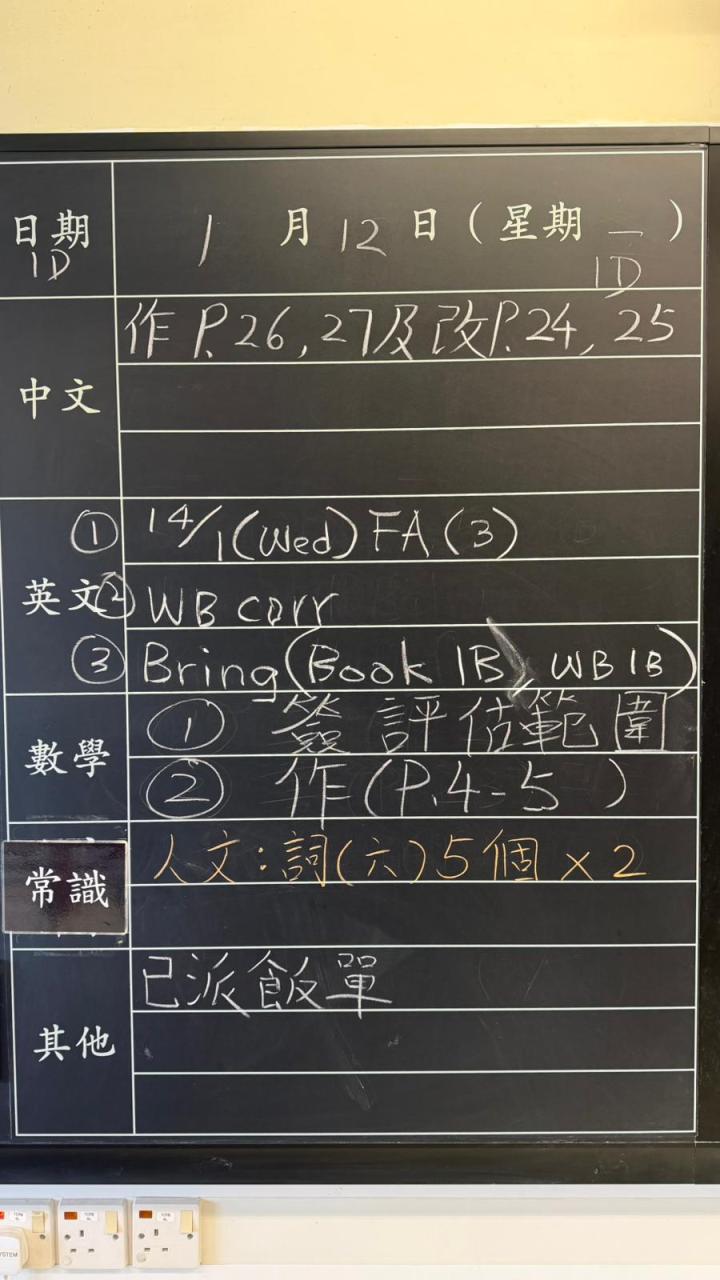 日期 1 月 12 日 ( 星期 一 )
1D 1D
中文
作 P.26, 27及改P.24, 25
英文
① 14/1(Wed) FA (3)
② WB corr
③ Bring(Book 1B, WB 1B)
數學
① 簽評估範圍
② 作(P.4-5 )
常識
人文：詞(六)5個 x 2
其他
已派飯單